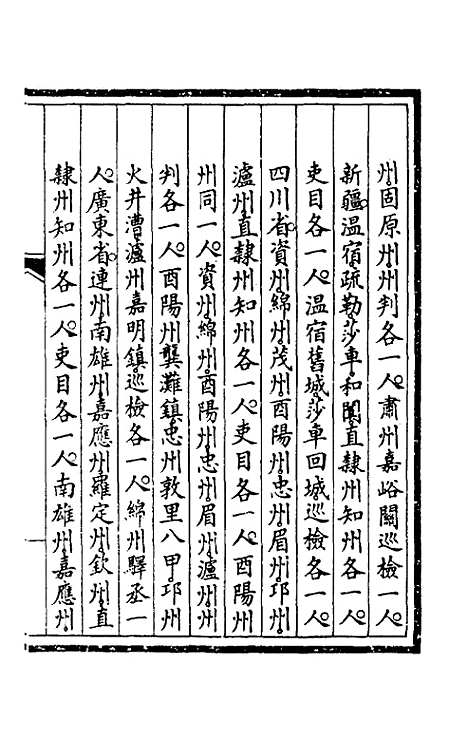 州固原州州判各一人肅州嘉峪關巡檢一人
新疆溫宿疏勒莎車和闐直隸州知州各一人
吏目各一人溫宿舊城莎車回城巡檢各一人
四川省資州綿州茂州酉陽州忠州眉州邛州
瀘州直隸州知州各一人吏目各一人酉陽州
州同一人資州綿州酉陽州忠州眉州瀘州州
判各一人酉陽州龔灘鎮忠州敦里八甲邛州
火井漕瀘州嘉明鎮巡檢各一人綿州驛丞一
人廣東省連州南雄州嘉應州羅定州欽州直
隸州知州各一人吏目各一人南雄州嘉應州